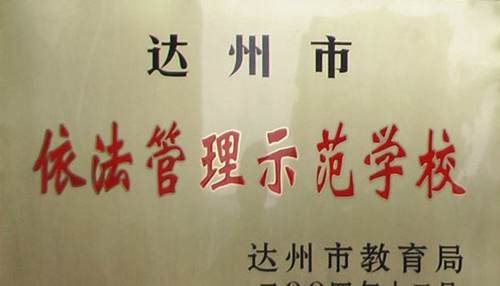 达州市
依法管理示范学校
达州市教育局